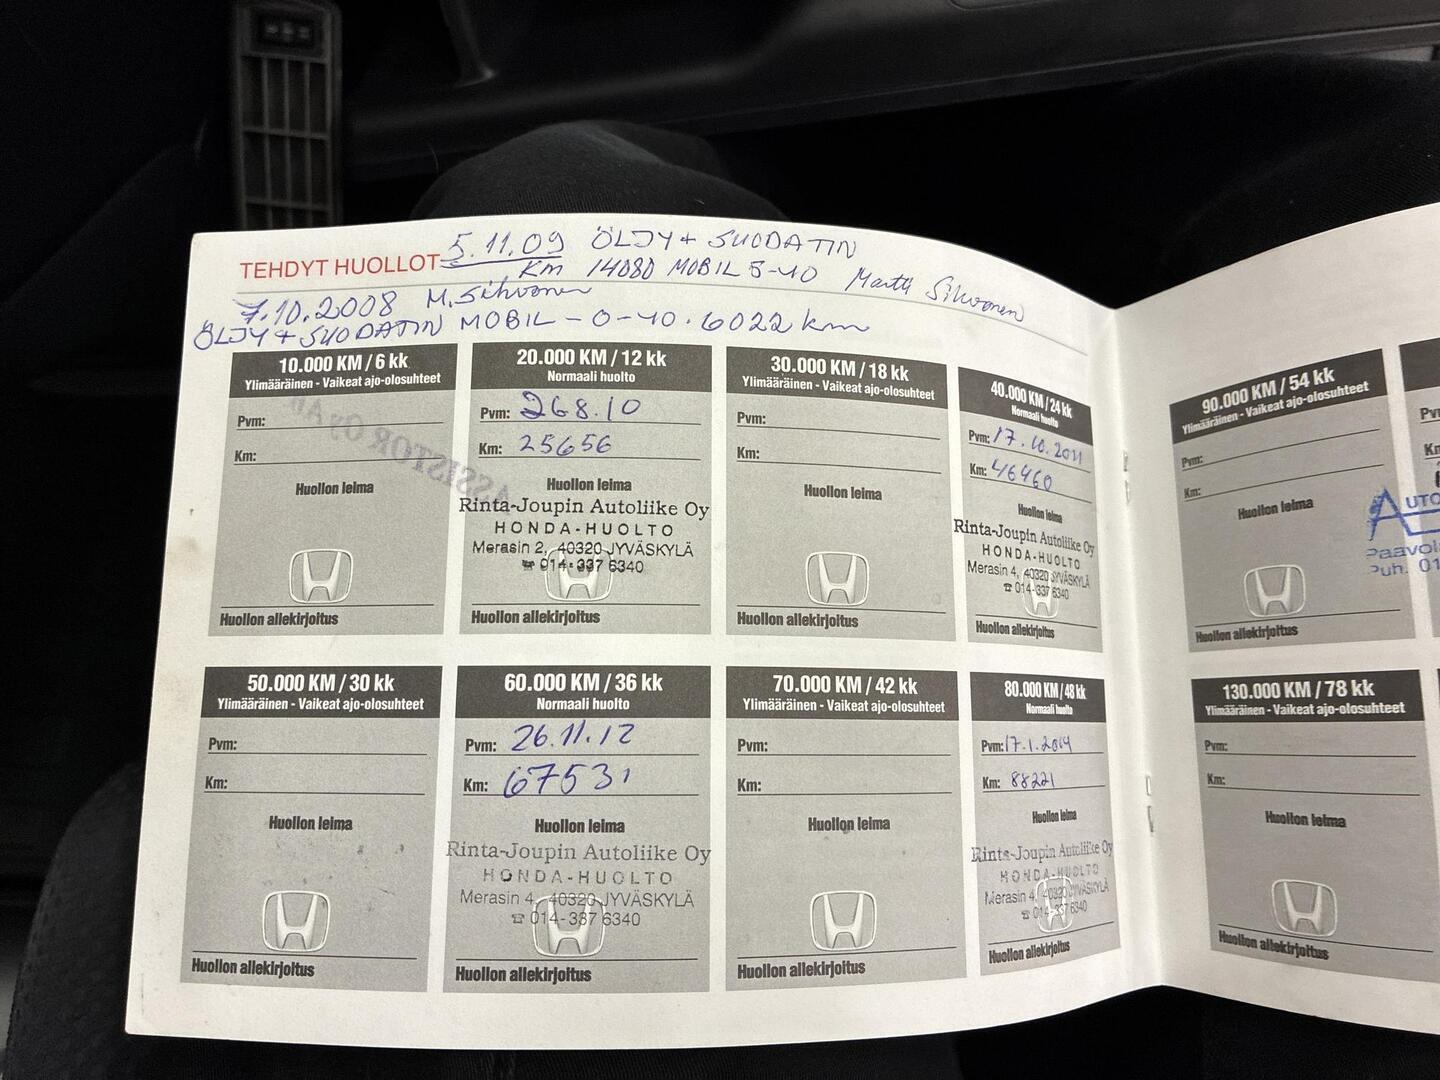 TEHDYT HUOLLOT 5.11.09 ÖLJY + SUODATIN
Km 14080 MOBIL 5-40 Martti Sihvonen
7.10.2008 M. Sihvonen
ÖLJY + SUODATIN MOBIL - 0-40. 6022 km
10.000 KM / 6 kk
Ylimääräinen - Vaikeat ajo-olosuhteet
Pvm:
Km:
Huollon leima
Huollon allekirjoitus
20.000 KM / 12 kk
Normaali huolto
Pvm: 268.10
Km: 25656
Huollon leima
Rinta-Joupin Autoliike Oy
HONDA-HUOLTO
Merasin 2, 40320 JYVÄSKYLÄ
☎ 014-337 6340
Huollon allekirjoitus
30.000 KM / 18 kk
Ylimääräinen - Vaikeat ajo-olosuhteet
Pvm:
Km:
Huollon leima
Huollon allekirjoitus
40.000 KM / 24 kk
Normaali huolto
Pvm: 17.10.2011
Km: 46460
Huollon leima
Rinta-Joupin Autoliike Oy
HONDA-HUOLTO
Merasin 4, 40320 JYVÄSKYLÄ
☎ 014-337 6340
Huollon allekirjoitus
50.000 KM / 30 kk
Ylimääräinen - Vaikeat ajo-olosuhteet
Pvm:
Km:
Huollon leima
Huollon allekirjoitus
60.000 KM / 36 kk
Normaali huolto
Pvm: 26.11.12
Km: 67531
Huollon leima
Rinta-Joupin Autoliike Oy
HONDA-HUOLTO
Merasin 4, 40320 JYVÄSKYLÄ
☎ 014-337 6340
Huollon allekirjoitus
70.000 KM / 42 kk
Ylimääräinen - Vaikeat ajo-olosuhteet
Pvm:
Km:
Huollon leima
Huollon allekirjoitus
80.000 KM / 48 kk
Normaali huolto
Pvm: 17.1.2014
Km: 88221
Huollon leima
Rinta-Joupin Autoliike Oy
HONDA-HUOLTO
Merasin 4, 40320 JYVÄSKYLÄ
☎ 014-337 6340
Huollon allekirjoitus
90.000 KM / 54 kk
Ylimääräinen - Vaikeat ajo-olosuhteet
Pvm:
Km:
Huollon leima
Huollon allekirjoitus
130.000 KM / 78 kk
Ylimääräinen - Vaikeat ajo-olosuhteet
Pvm:
Km:
Huollon leima
Huollon allekirjoitus
AUTO
Paavol
Puh. 01